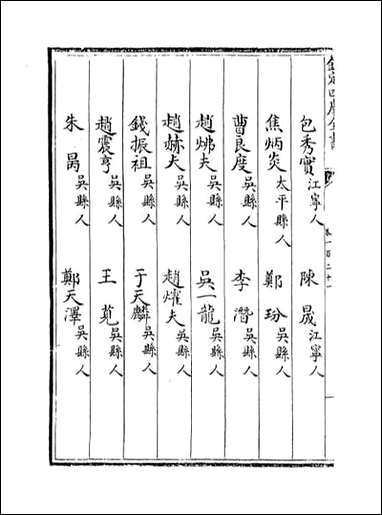 欽定四庫全書
包秀實江寧人 陳晟江寧人
焦炳炎太平縣人 鄭玢吳縣人
曹良度吳縣人 李潛吳縣人
趙㷆夫吳縣人 吳一龍吳縣人
趙赫夫吳縣人 趙燿夫吳縣人
錢振祖吳縣人 于天麟吳縣人
趙震亨吳縣人 王莧吳縣人
朱昺吳縣人 鄭天澤吳縣人